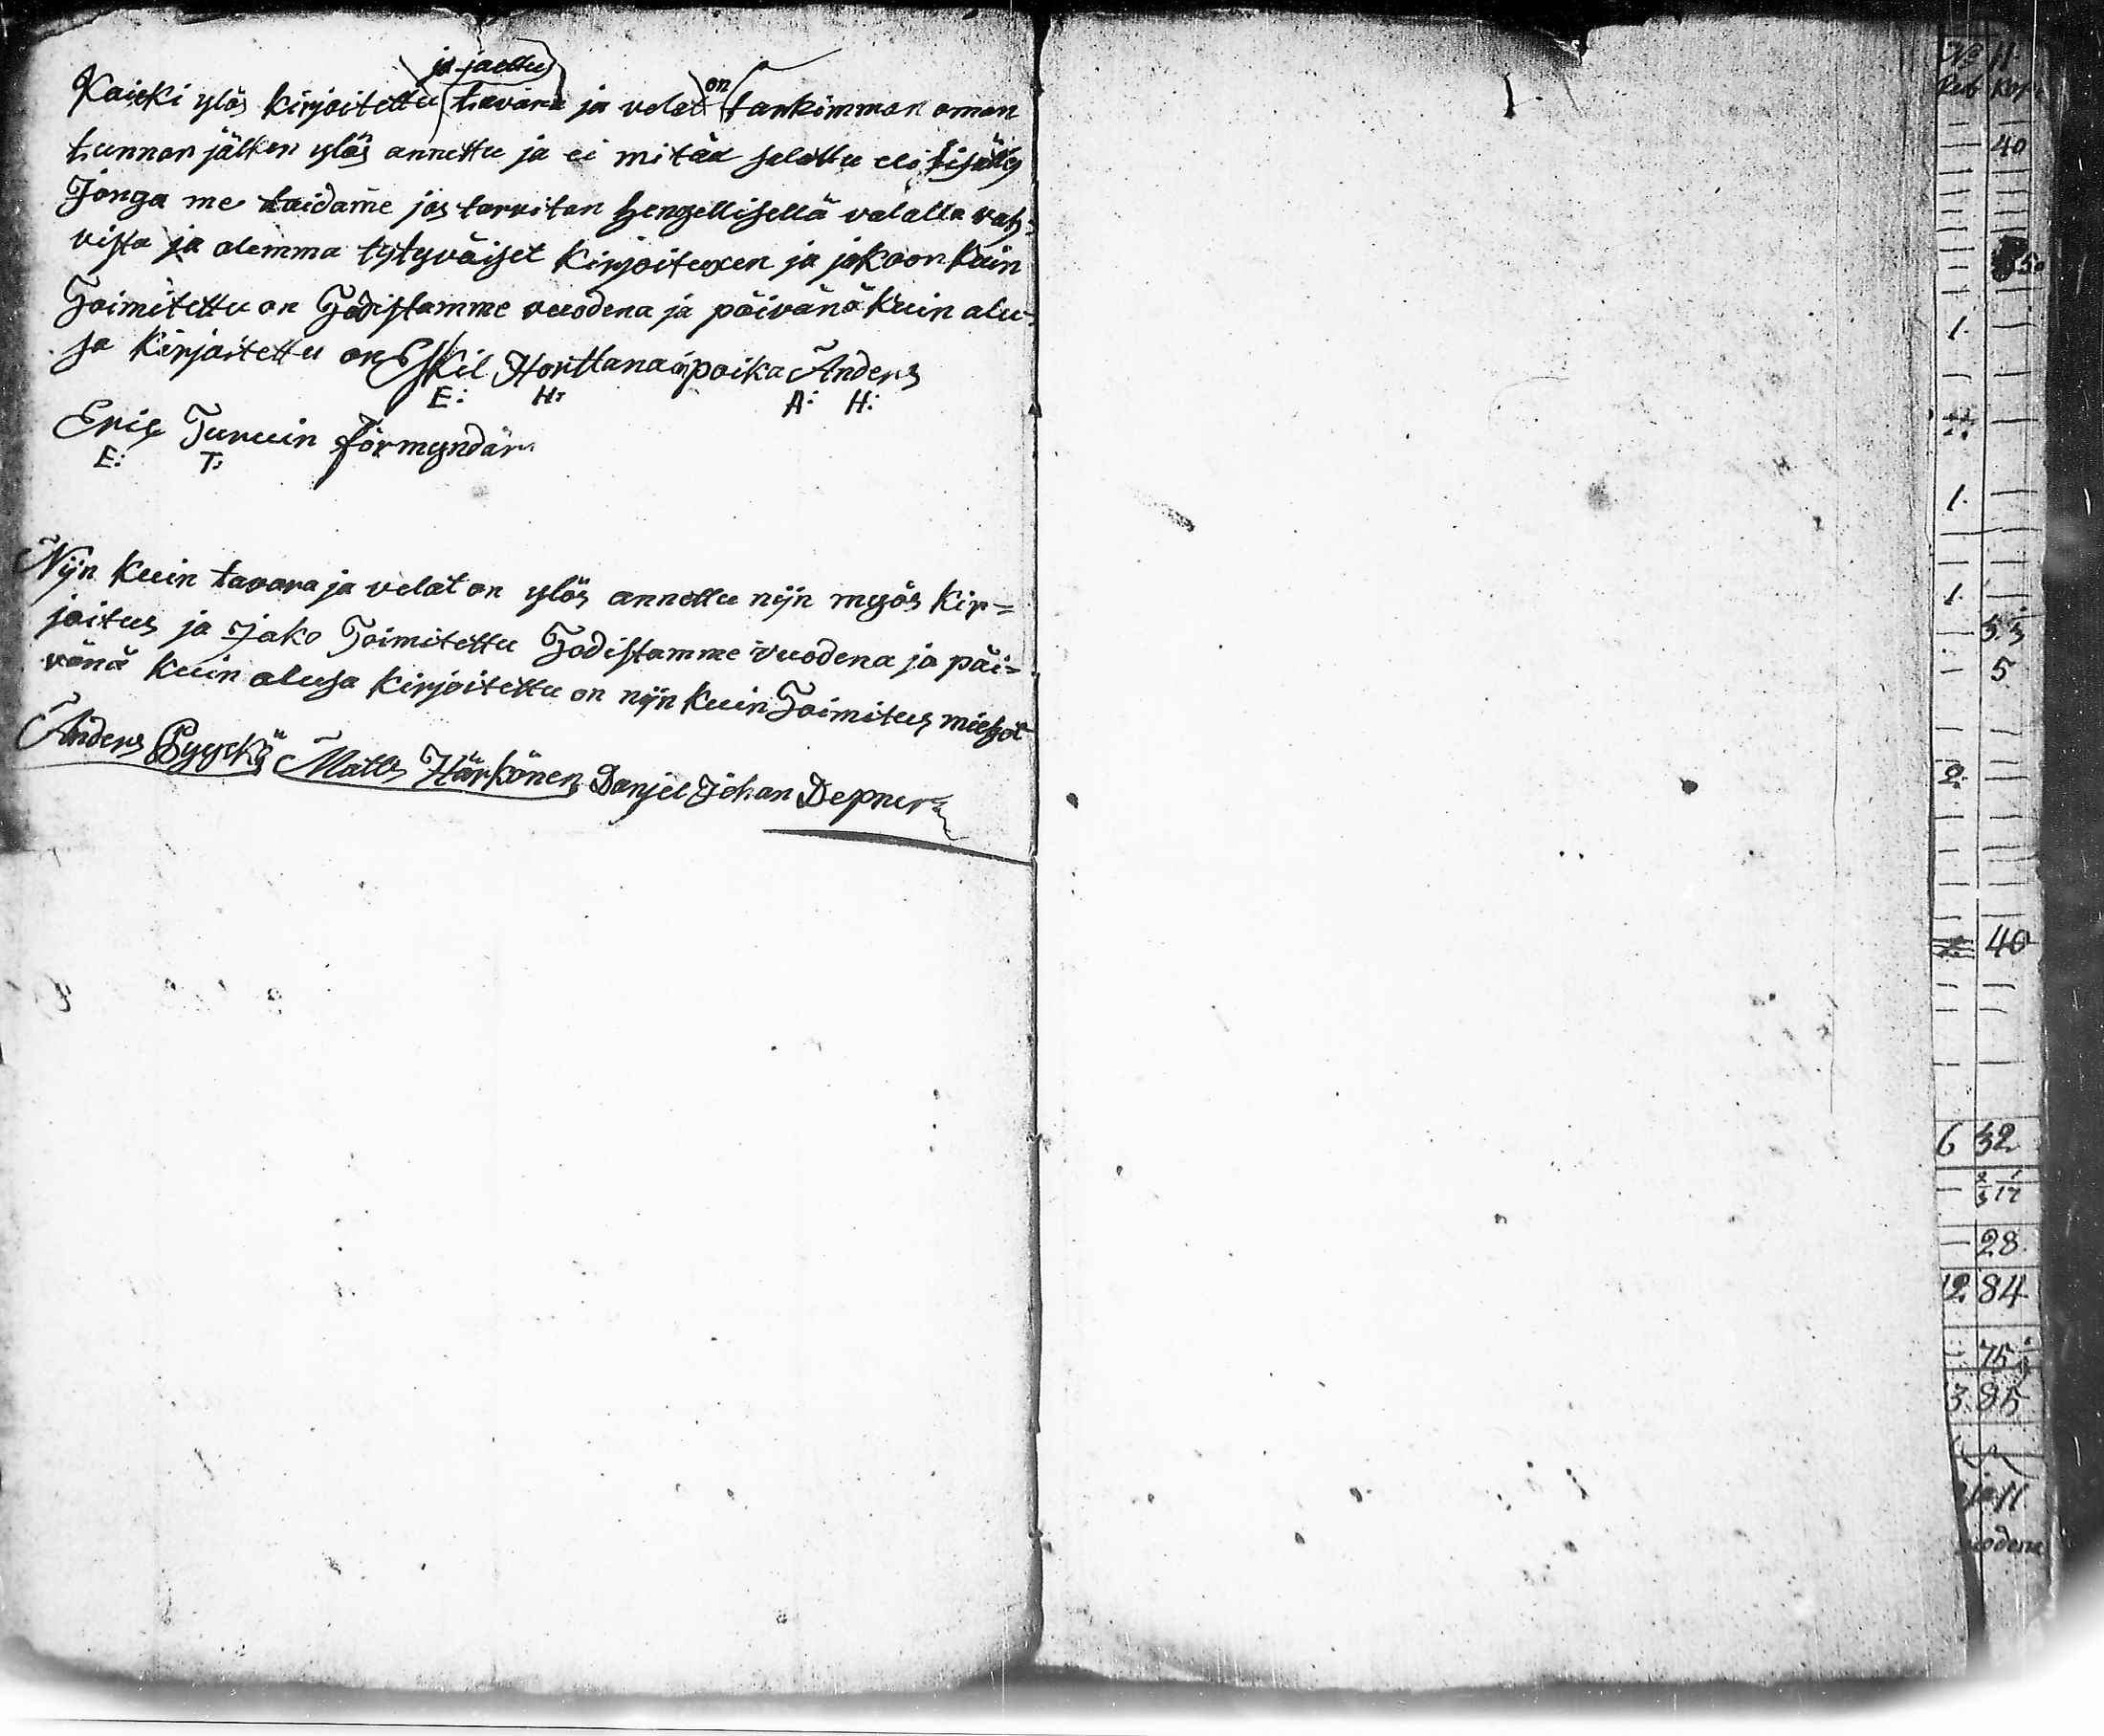 ja jaettu
Kaicki ylös kirjoitettu tavara ja velat on tarkimman oman
tunnon jälken ylös annettu ja ei mitää salattu eli lisätty
Jonga me taidame jos tarvitan hengellisellä valalla vah=
vista ja olemma tytyväiset kirjoituxen ja jakoon kuin
Toimitettu on Todistamme vuodena ja päivänä kuin alu=
sa kirjoitettu on Eskil Horttanain poika Anders
E: H: A: H:
Eric Turuin förmyndär
E: T:
Nijn kuin tavara ja velat on ylös annettu nijn myös kir=
joitus ja jako Toimitettu Todistamme vuodena ja päi=
vänä kuin alusa kirjoitettu on nijn kuin Toimitus miehet
Anders Pyyckö Matts Härkönen Danjel Johan Depner
No 11.
Rub Kop
40
50
1.
1.
1.
5
2.
40
6 32
28.
12. 84
75
3. 85
uodena